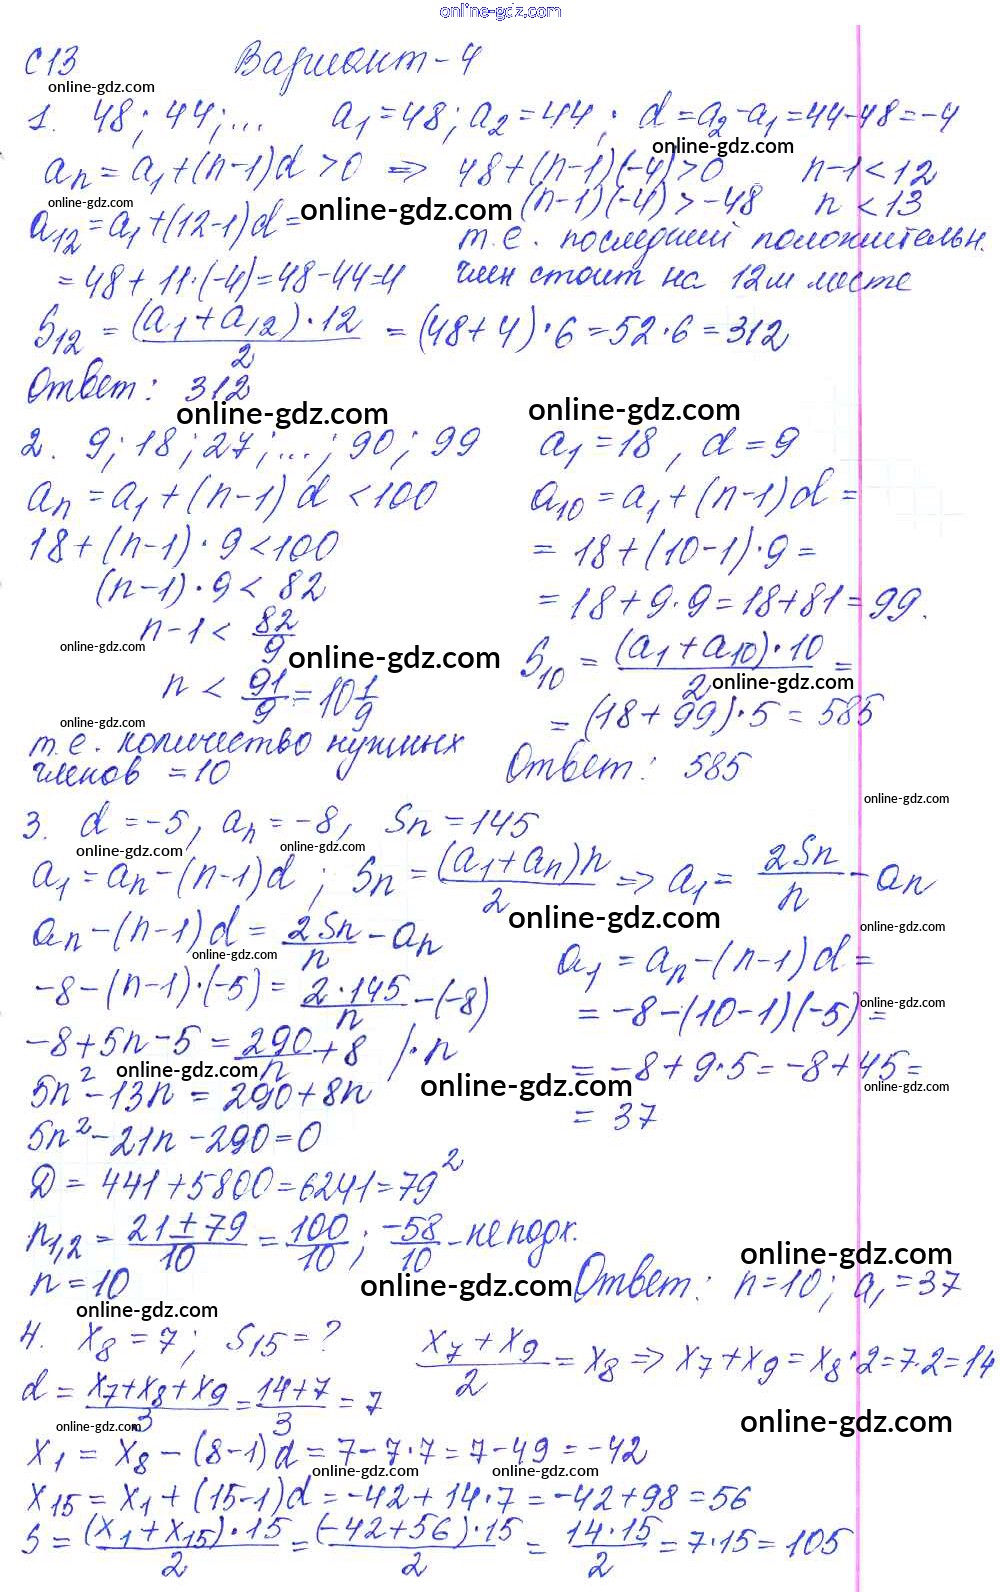 online-gdz.com
С13 Вариант-4
online-gdz.com
1. 48; 44; ... a₁=48; a₂=44; d=a₂-a₁=44-48=-4
online-gdz.com
aₙ=a₁+(n-1)d>0 => 48+(n-1)(-4)>0 n-1<12
online-gdz.com online-gdz.com (n-1)(-4)>-48 n<13
a₁₂=a₁+(12-1)d= т.е. последний положительн.
=48+11·(-4)=48-44=4 член стоит на 12м месте
S₁₂=(a₁+a₁₂)·12/2=(48+4)·6=52·6=312
Ответ: 312
online-gdz.com online-gdz.com
2. 9; 18; 27; ...; 90; 99 a₁=18, d=9
aₙ=a₁+(n-1)d<100 a₁₀=a₁+(n-1)d=
18+(n-1)·9<100 =18+(10-1)·9=
(n-1)·9<82 =18+9·9=18+81=99.
n-1<82/9 S₁₀=(a₁+a₁₀)·10/2=
online-gdz.com online-gdz.com online-gdz.com
n<91/9=10 1/9 =(18+99)·5=585
online-gdz.com
т.е. количество нужных
членов =10 Ответ: 585
online-gdz.com
3. d=-5, aₙ=-8, Sn=145
online-gdz.com online-gdz.com
a₁=aₙ-(n-1)d; Sₙ=(a₁+aₙ)n/2 => a₁=2Sn/n-aₙ
online-gdz.com online-gdz.com
aₙ-(n-1)d=2Sn/n-aₙ a₁=aₙ-(n-1)d=
online-gdz.com
-8-(n-1)·(-5)=2·145/n-(-8) =-8-(10-1)(-5)=
online-gdz.com
-8+5n-5=290/n+8 |·n =-8+9·5=-8+45=
online-gdz.com online-gdz.com online-gdz.com
5n²-13n=290+8n =37
5n²-21n-290=0
D=441+5800=6241=79²
n₁,₂=21±79/10=100/10; -58/10-не подх.
online-gdz.com online-gdz.com
n=10 Ответ: n=10; a₁=37
online-gdz.com
4. x₈=7; S₁₅=? x₇+x₉/2=x₈ => x₇+x₉=x₈·2=7·2=14
d=x₇+x₈+x₉/3=14+7/3=7
online-gdz.com online-gdz.com
x₁=x₈-(8-1)d=7-7·7=7-49=-42
online-gdz.com online-gdz.com
x₁₅=x₁+(15-1)d=-42+14·7=-42+98=56
S=(x₁+x₁₅)·15/2=(-42+56)·15/2=14·15/2=7·15=105